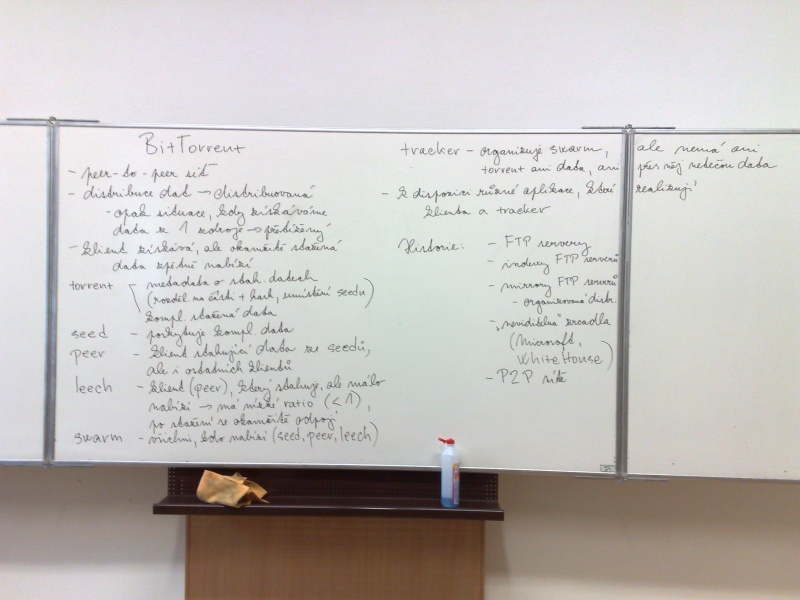 BitTorrent
- peer-to-peer síť
- distribuce dat → distribuovaná
- opak situace, kdy získáváme
data z 1 zdroje → přetížený
- klient získává, ale okamžitě stažená
data zpětně nabízí
torrent metadata o stah. datech
(rozděl. na části + hash, umístění seedu)
kompl. stažená data
seed - poskytuje kompl. data
peer - klient stahující data ze seedů,
ale i ostatních klientů
leech - klient (peer), který stahuje, ale málo
nabízí → má nízké ratio (< 1),
po stažení se okamžitě odpojí
swarm - všichni, kdo nabízí (seed, peer, leech)
tracker - organizuje swarm, ale nemá ani
torrent ani data, ani přes něj netečou data
- k dispozici různé aplikace, které realizují
klienta a tracker
Historie: - FTP servery
- indexy FTP serverů
- mirrory FTP serverů
- organizovaná distr.
- „neviditelná" zrcadla
(Microsoft,
WhiteHouse)
- P2P sítě